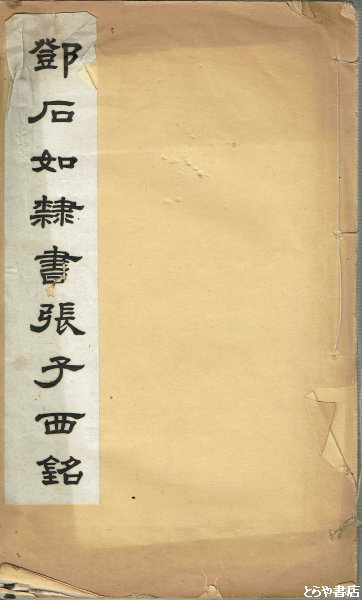 鄧石如隸書張子西銘
とらや書店